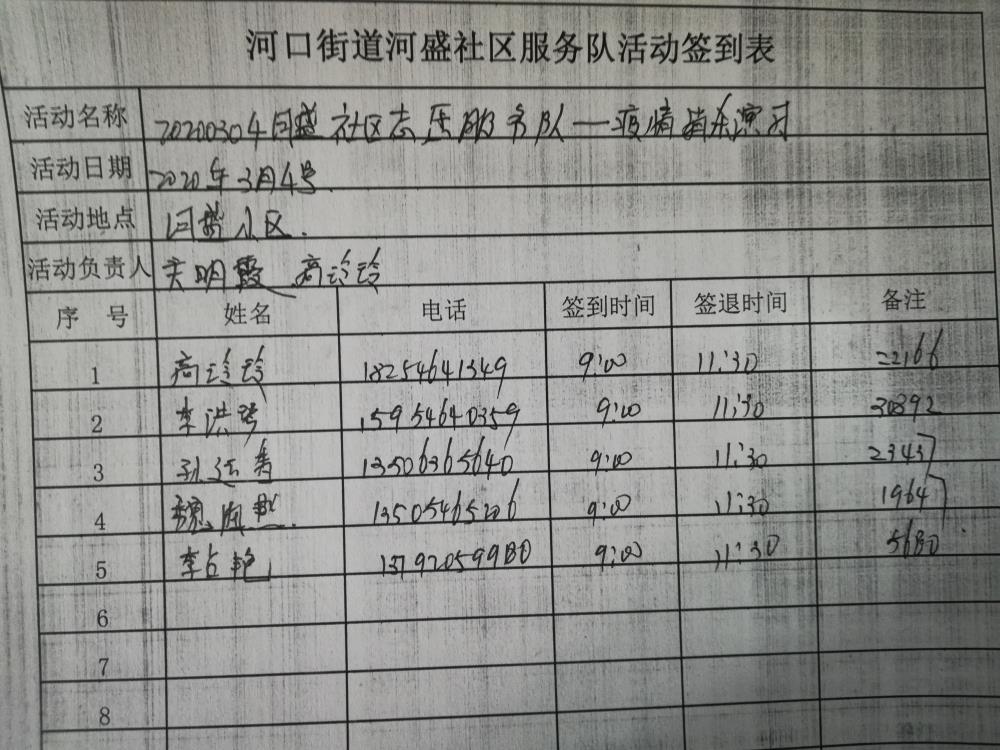 河口街道河盛社区服务队活动签到表
活动名称 20200304河盛社区志愿服务队—疫情消杀演习
活动日期 2020年3月4号.
活动地点 河盛小区.
活动负责人 明霞 高玲玲
序 号 姓名 电话 签到时间 签退时间 备注
1 高玲玲 18254641349 9:00 11:30 22166
2 李洪 15954640359 9:00 11:30 30392
3 孙 秀 13506365640 9:00 11:30 23437
4 魏 13505465206 9:00 11:30 19647
5 李占艳 13792059980 9:00 11:30 5680
6
7
8